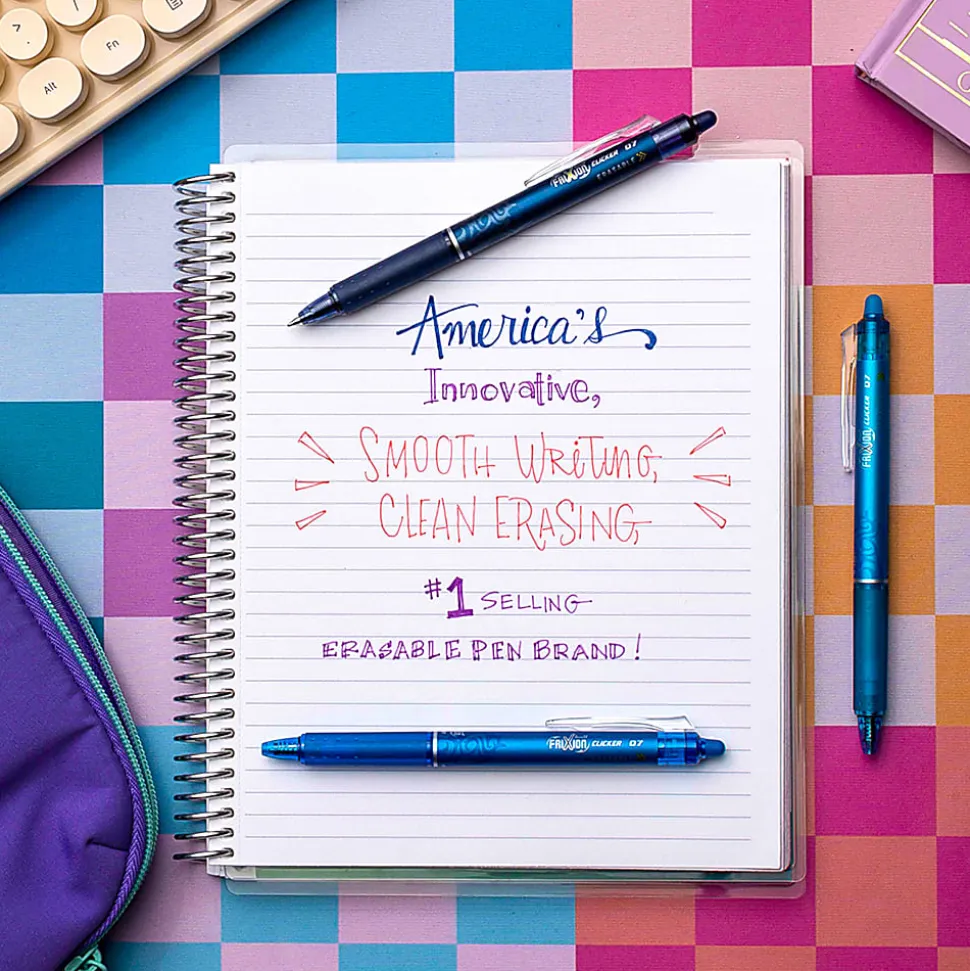 Fn
Alt
FRIXION CLICKER 07
ERASABLE
America's
Innovative,
SMOOTH WRiTiNG,
CLEAN ERASING,
#1 SELLING
ERASABLE PEN BRAND!
FRIXION CLICKER 07
FRIXION CLICKER 07